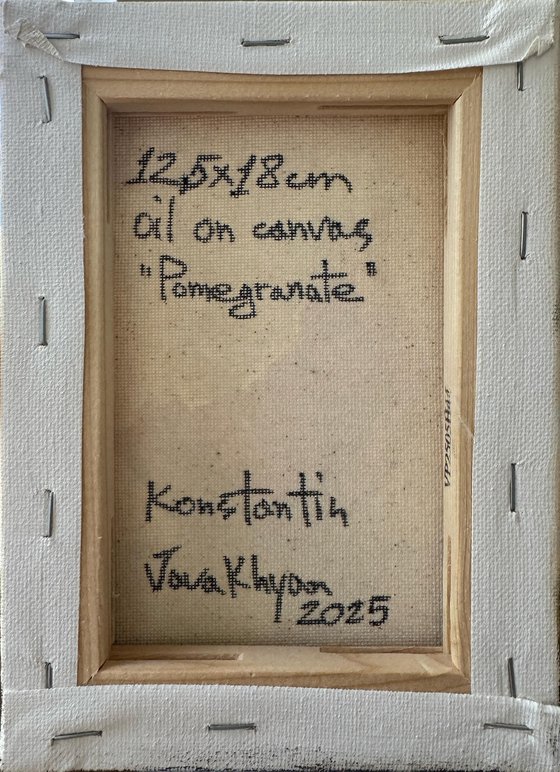 12,5x18cm
oil on canvas
"Pomegranate"
Konstantin
JavaKhyan
2025